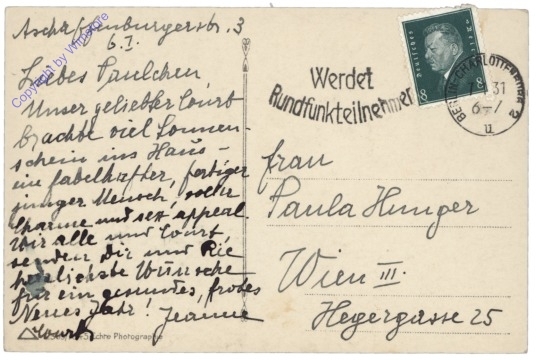 Aschaffenburgerstr. 3
6.I.
Liebes Paulchen,
Unser geliebter Court
brachte viel Sonnen-
schein ins Haus –
ein fabelhafter, fertiger
junger Mensch, voller
Charme und sex appeal.
Wir alle und Court,
senden Dir und Ric
herzlichste Wünsche
für ein gesundes, frohes
Neues Jahr! Jeanne
Copyright by Wimsen.e
Photographie
Werdet
Rundfunkteilnehmer
Deutsches Reich
8 8
BERLIN-CHARLOTTENBURG 2
31
6-7
u
Frau
Paula Hunger
Wien III.
Hegergasse 25